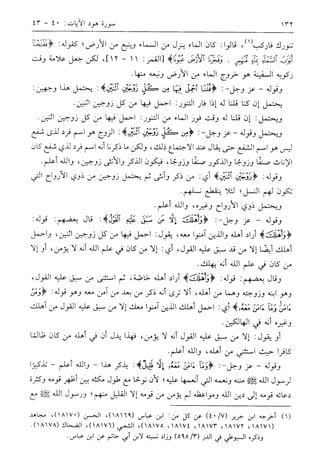 ١٣٢
سورة هود الآيات: ٤٠ - ٤٣
تنورك فاركب(١)، قالوا: كان الماء ينزل من السماء وينبع من الأرض؛ كقوله: ﴿فَفَتَحْنَا
أَبْوَابَ السَّمَاءِ بِمَاءٍ مُّنْهَمِرٍ . وَفَجَّرْنَا الْأَرْضَ عُيُونًا﴾ [القمر: ١١ - ١٢]، لكن جعل علامة وقت
ركوبه السفينة هو خروج الماء من الأرض ونبعه منها.
وقوله - عز وجل -: ﴿قُلْنَا احْمِلْ فِيهَا مِن كُلٍّ زَوْجَيْنِ اثْنَيْنِ﴾: يحتمل هذا وجهين:
يحتمل إن كنا قلنا له إذا فار التنور: احمل فيها من كل زوجين اثنين.
ويحتمل: إن قلنا له وقت فور الماء من التنور: احمل فيها من كل زوجين اثنين.
ويحتمل وقوله - عز وجل -: ﴿مِن كُلٍّ زَوْجَيْنِ اثْنَيْنِ﴾: الزوج هو اسم فرد لذي شفع
ليس هو اسم الشفع حتى يقال عند الاجتماع ذلك، ولكن ما ذكرنا أنه اسم فرد لذي شفع كان
الإناث صنفًا وزوجًا والذكور صنفًا وزوجًا، فيكون الذكر والأنثى زوجين، والله أعلم.
وقوله: ﴿زَوْجَيْنِ اثْنَيْنِ﴾ أي: من ذكر وأنثى ثم يحتمل زوجين من ذوي الأرواح التي
تكون لهم النسل؛ لئلا ينقطع نسلهم.
ويحتمل ذوي الأرواح وغيره، والله أعلم.
وقوله - عز وجل -: ﴿وَأَهْلَكَ إِلَّا مَن سَبَقَ عَلَيْهِ الْقَوْلُ﴾: قال بعضهم: قوله:
﴿وَأَهْلَكَ﴾ أراد أهله والذين آمنوا معه، يقول: احمل فيها من كل زوجين اثنين، واحمل
أهلك أيضًا إلا من قد سبق عليه القول، أي: إلا من كان في علم الله أنه لا يؤمن، أو إلا
من كان في علم الله أنه يهلك.
وقال بعضهم: قوله: ﴿وَأَهْلَكَ﴾ أراد أهله خاصة، ثم استثنى من سبق عليه القول،
وهو ابنه وزوجته وهما من أهله، ألا ترى أنه ذكر من بعد من آمن معه وهو قوله: ﴿وَمَنْ
ءَامَنَ وَمَا ءَامَنَ مَعَهُ﴾ أي: احمل أهلك الذين آمنوا معك إلا من سبق عليه القول من أهلك
وغيره أنه في الهالكين.
أو يقول: إلا من سبق عليه القول أنه لا يؤمن، فهذا يدل أن في أهله من كان ظالمًا
كافرا حيث استثنى من أهله، والله أعلم.
وقوله - عز وجل -: ﴿وَمَا ءَامَنَ مَعَهُ إِلَّا قَلِيلٌ﴾: يذكر هذا - والله أعلم - تذكيرًا
لرسول الله ﷺ مننه ونعمه التي أنعمها عليه؛ لأن نوحًا مع طول مكثه بين أظهر قومه وكثرة
دعائه قومه إلى دين الله ومواعظه لم يؤمن من قومه إلا القليل منهم؛ ورسول الله ﷺ مع
(١) أخرجه ابن جرير (٤٠/٧) عن كل من: ابن عباس (١٨١٦٩)، الحسن (١٨١٧٠)، مجاهد
(١٨١٧١، ١٨١٧٢، ١٨١٧٣، ١٨١٧٤، ١٨١٧٥)، الشعبي (١٨١٧٦)، الضحاك (١٨١٧٨).
وذكره السيوطي في الدر (٥٩٥/٣) وزاد نسبته لابن أبي حاتم عن ابن عباس.